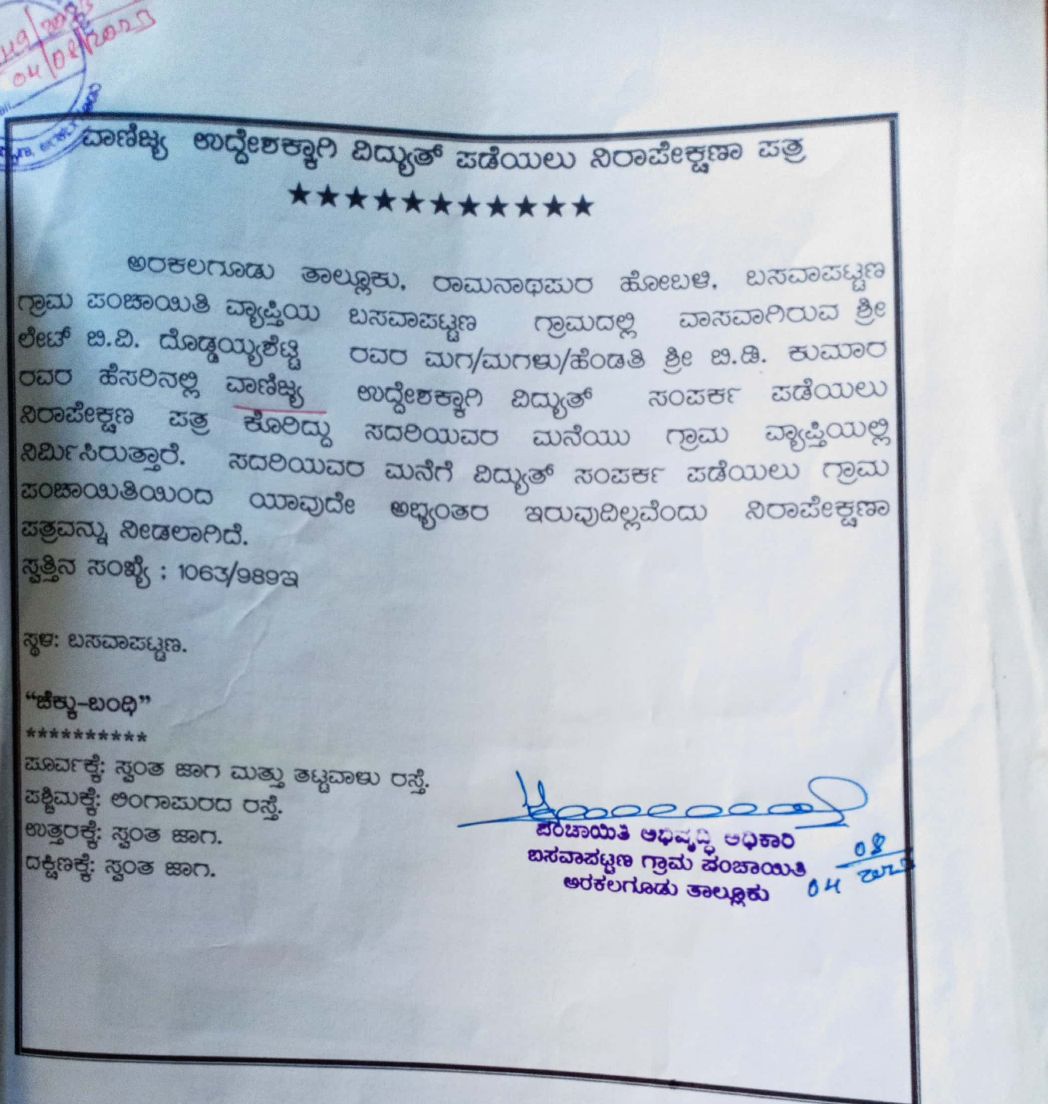 04/08/2023
ವಾಣಿಜ್ಯ ಉದ್ದೇಶಕ್ಕಾಗಿ ವಿದ್ಯುತ್ ಪಡೆಯಲು ನಿರಾಪೇಕ್ಷಣಾ ಪತ್ರ
★★★★★★★★★★★
ಅರಕಲಗೂಡು ತಾಲ್ಲೂಕು. ರಾಮನಾಥಪುರ ಹೋಬಳಿ. ಬಸವಾಪಟ್ಟಣ
ಗ್ರಾಮ ಪಂಚಾಯಿತಿ ವ್ಯಾಪ್ತಿಯ ಬಸವಾಪಟ್ಟಣ ಗ್ರಾಮದಲ್ಲಿ ವಾಸವಾಗಿರುವ ಶ್ರೀ
ಲೇಟ್ ಬಿ.ವಿ. ದೊಡ್ಡಯ್ಯಶೆಟ್ಟಿ ರವರ ಮಗ/ಮಗಳು/ಹೆಂಡತಿ ಶ್ರೀ ಬಿ.ಡಿ. ಕುಮಾರ
ರವರ ಹೆಸರಿನಲ್ಲಿ ವಾಣಿಜ್ಯ ಉದ್ದೇಶಕ್ಕಾಗಿ ವಿದ್ಯುತ್ ಸಂಪರ್ಕ ಪಡೆಯಲು
ನಿರಾಪೇಕ್ಷಣ ಪತ್ರ ಕೊರಿದ್ದು ಸದರಿಯವರ ಮನೆಯು ಗ್ರಾಮ ವ್ಯಾಪ್ತಿಯಲ್ಲಿ
ನಿರ್ಮಿಸಿರುತ್ತಾರೆ. ಸದರಿಯವರ ಮನೆಗೆ ವಿದ್ಯುತ್ ಸಂಪರ್ಕ ಪಡೆಯಲು ಗ್ರಾಮ
ಪಂಚಾಯಿತಿಯಿಂದ ಯಾವುದೇ ಅಭ್ಯಂತರ ಇರುವುದಿಲ್ಲವೆಂದು ನಿರಾಪೇಕ್ಷಣಾ
ಪತ್ರವನ್ನು ನೀಡಲಾಗಿದೆ.
ಸ್ವತ್ತಿನ ಸಂಖ್ಯೆ : 1063/989ಇ
ಸ್ಥಳ: ಬಸವಾಪಟ್ಟಣ.
“ಚೆಕ್ಕು-ಬಂಧಿ”
**********
ಪೂರ್ವಕ್ಕೆ: ಸ್ವಂತ ಜಾಗ ಮತ್ತು ತಟ್ಟವಾಳು ರಸ್ತೆ.
ಪಶ್ಚಿಮಕ್ಕೆ: ಲಿಂಗಾಪುರದ ರಸ್ತೆ.
ಉತ್ತರಕ್ಕೆ: ಸ್ವಂತ ಜಾಗ.
ದಕ್ಷಿಣಕ್ಕೆ: ಸ್ವಂತ ಜಾಗ.
ಪಂಚಾಯಿತಿ ಅಭಿವೃದ್ಧಿ ಅಧಿಕಾರಿ
ಬಸವಾಪಟ್ಟಣ ಗ್ರಾಮ ಪಂಚಾಯಿತಿ
ಅರಕಲಗೂಡು ತಾಲ್ಲೂಕು
04 08